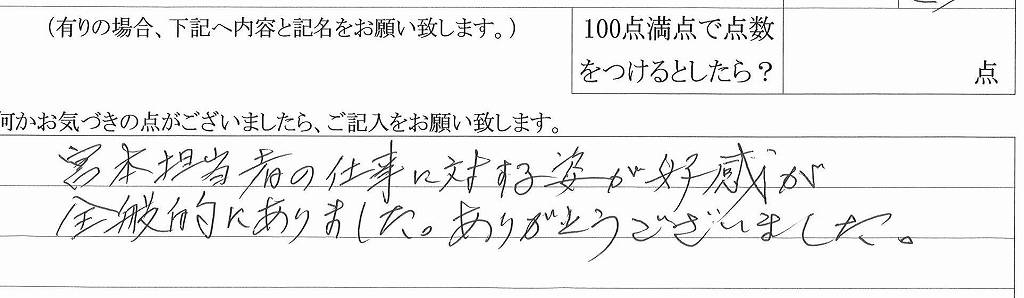 (有りの場合、下記へ内容と記名をお願い致します。)
100点満点で点数
をつけるとしたら？
点
何かお気づきの点がございましたら、ご記入をお願い致します。
宮本担当者の仕事に対する姿が好感が
全般的にありました。ありがとうございました。